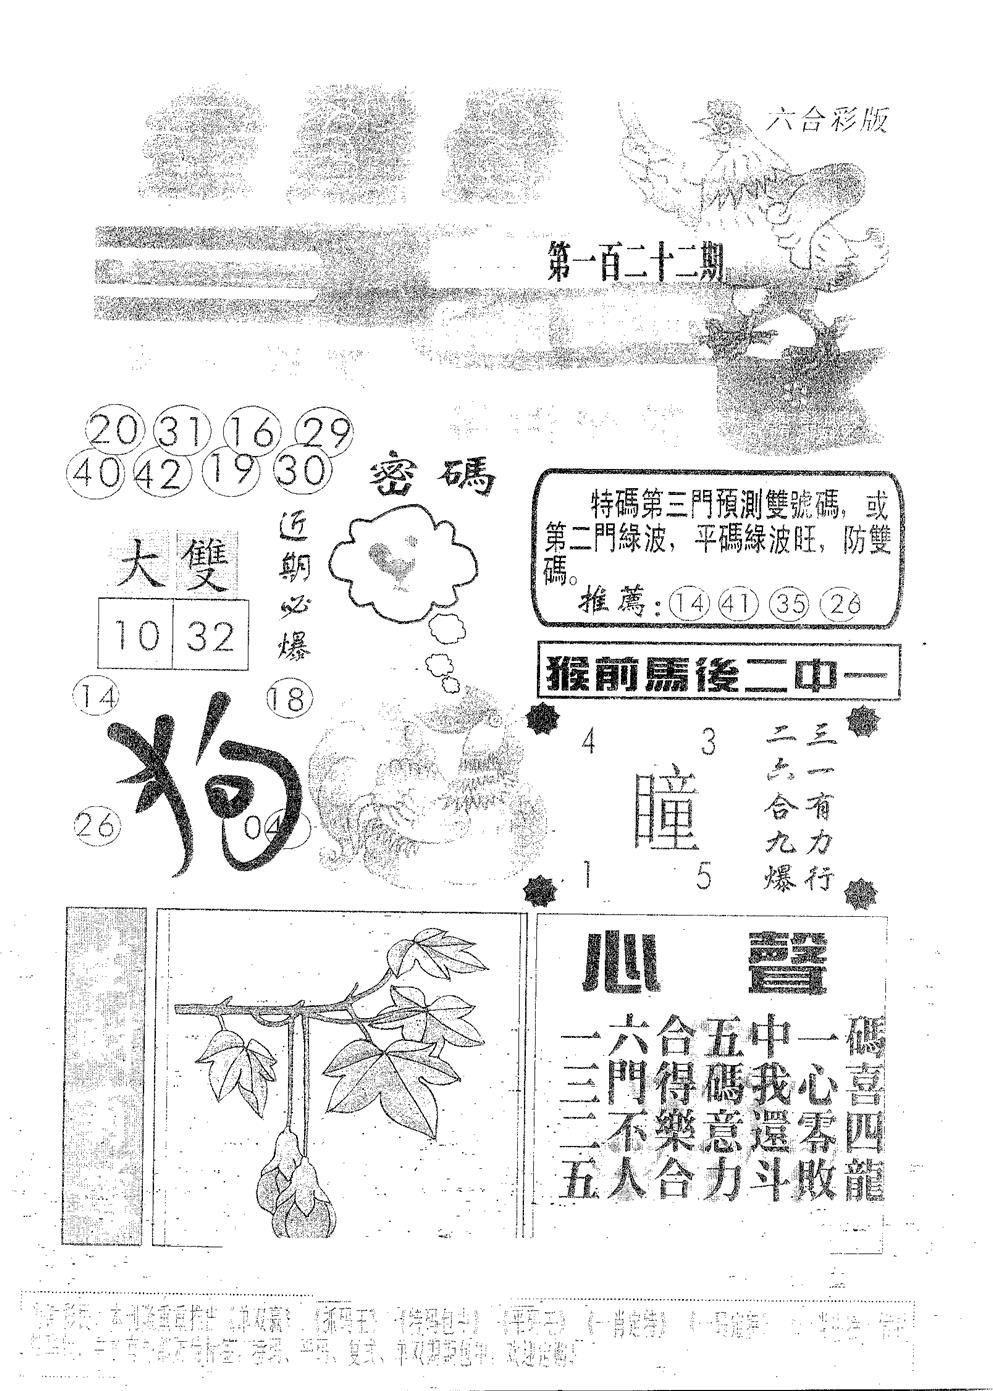 六合彩版
第一百二十二期
20 31 16 29
40 42 19 30
密碼
近期必爆
大 雙
10 32
特碼第三門預測雙號碼，或
第二門綠波，平碼綠波旺，防雙
碼。
推薦：14 41 35 26
猴前馬後二中一
14 18
狗
26 04
4 3
瞳
1 5
三一有力行
二六合九爆
心聲
一六合五中一碼
三門得碼我心喜
二不樂意還零四
五人合力斗敗龍